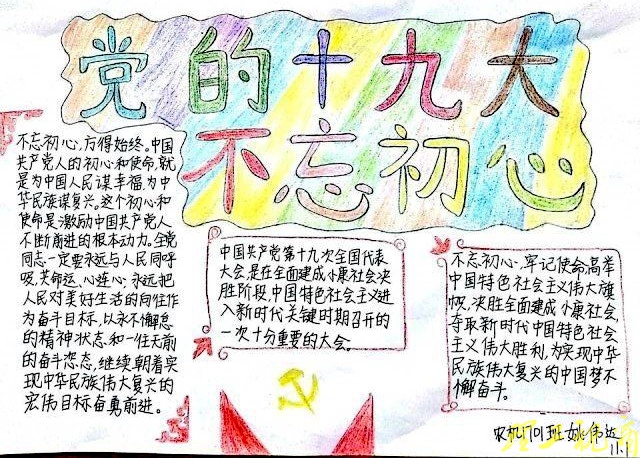 党的十九大
不忘初心
不忘初心,方得始终。中国
共产党人的初心和使命,就
是为中国人民谋幸福,为中
华民族谋复兴。这个初心和
使命是激励中国共产党人
不断前进的根本动力。全党
同志一定要永远与人民同呼
吸、共命运、心连心,永远把
人民对美好生活的向往作
为奋斗目标,以永不懈怠
的精神状态和一往无前
的奋斗姿态,继续朝着实
现中华民族伟大复兴的
宏伟目标奋勇前进。
中国共产党第十九次全国代表
大会,是在全面建成小康社会决
胜阶段,中国特色社会主义进
入新时代关键时期召开的
一次十分重要的大会。
不忘初心,牢记使命,高举
中国特色社会主义伟大旗
帜,决胜全面建成小康社会
夺取新时代中国特色社会
主义伟大胜利,为实现中华
民族伟大复兴的中国梦不
懈奋斗。
农机1701班姚伟达
11.1